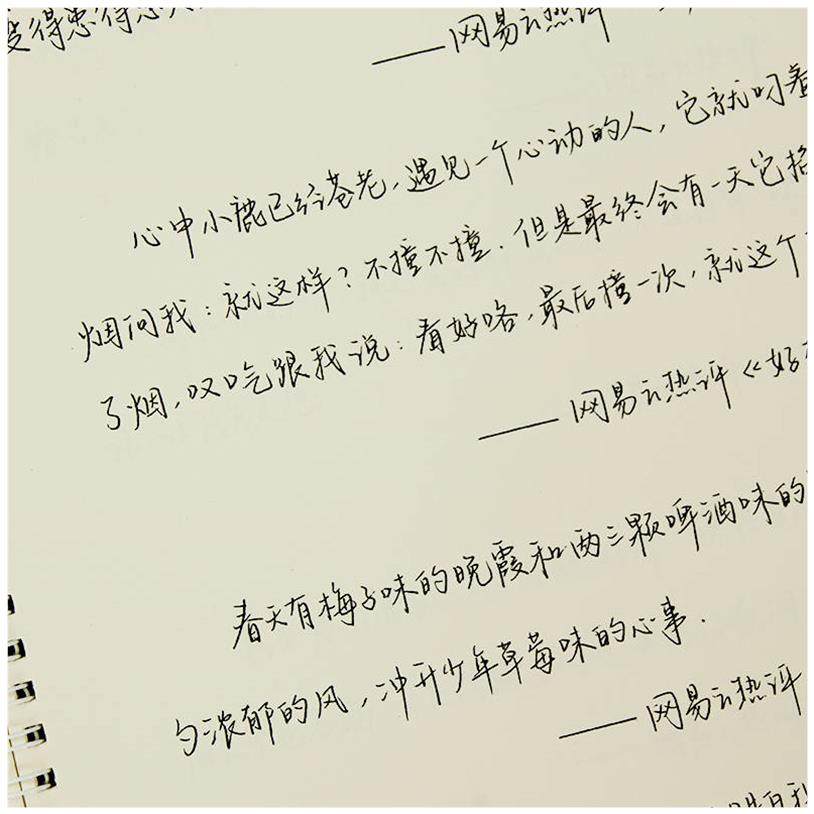 得患得
——网易云热评
心中小鹿已经苍老,遇见一个心动的人,它就叼着
烟问我:就这样?不撞不撞.但是最终会有一天它掐
了烟,叹吃跟我说:看好咯,最后撞一次,就这个
——网易云热评《好
春天有梅子味的晚霞和两三颗啤酒味的
勺浓郁的风,冲开少年草莓味的心事.
——网易云热评